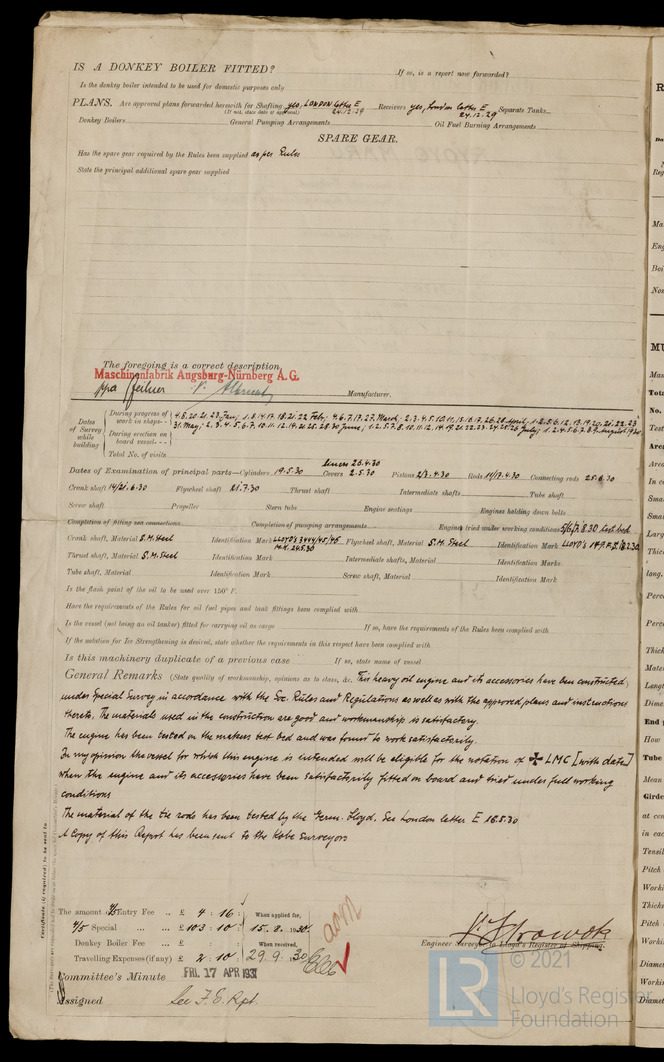 IS A DONKEY BOILER FITTED? If so, is a report now forwarded?
Is the donkey boiler intended to be used for domestic purposes only
PLANS. Are approved plans forwarded herewith for Shafting yes, LONDON letter E 24.12.29 Receivers yes, London letter E 24.12.29 Separate Tanks
(If not, state date of approval)
Donkey Boilers General Pumping Arrangements Oil Fuel Burning Arrangements
SPARE GEAR.
Has the spare gear required by the Rules been supplied as per Rules
State the principal additional spare gear supplied
The foregoing is a correct description,
Maschinenfabrik Augsburg-Nürnberg A.G.
ppa Manufacturer.
Dates of Survey while building
During progress of work in shops - - 4.8.20.21.23 Jan; 1.8.14.17.18.21.22 Feby; 4.6.7.17.27. March; 2.3.4.5.10.11.15.16.17.26.28 April; 1.2.5.6.12.13.19.20.21.22.23
31. May; 2.3.4.5.6.7.10.11.12.14.21.25.28.30 June; 1.2.5.7.8.10.11.12.14.19.21.22.23.24.25.26 July; 1.2.4.5.6.7.8.9 August 1930
During erection on board vessel - - -
Total No. of visits
Dates of Examination of principal parts—Cylinders 19.5.30 Liners 26.4.30 Covers 2.5.30 Pistons 2/3.4.30 Rods 14/17.4.30 Connecting rods 25.6.30
Crank shaft 14/21.6.30 Flywheel shaft 21.7.30 Thrust shaft Intermediate shafts Tube shaft
Screw shaft Propeller Stern tube Engine seatings Engines holding down bolts
Completion of fitting sea connections Completion of pumping arrangements Engines tried under working conditions 5/6/7.8.30 test bed
Crank shaft, Material S.M. Steel Identification Mark LLOYD'S 3444/45/46 M.K. 24.5.30 Flywheel shaft, Material S.M. Steel Identification Mark LLOYD'S
Thrust shaft, Material S.M. Steel Identification Mark Intermediate shafts, Material Identification Marks
Tube shaft, Material Identification Mark Screw shaft, Material Identification Mark
Is the flash point of the oil to be used over 150° F.
Have the requirements of the Rules for oil fuel pipes and tank fittings been complied with
Is the vessel (not being an oil tanker) fitted for carrying oil as cargo If so, have the requirements of the Rules been complied with
If the notation for Ice Strengthening is desired, state whether the requirements in this respect have been complied with
Is this machinery duplicate of a previous case If so, state name of vessel
General Remarks (State quality of workmanship, opinions as to class, &c. This heavy oil engine and its accessories have been constructed
under Special Survey in accordance with the Soc. Rules and Regulations as well as with the approved plans and instructions
thereto. The materials used in the construction are good and workmanship is satisfactory.
The engine has been tested on the makers test bed and was found to work satisfactorily.
In my opinion the vessel for which this engine is intended will be eligible for the notation of ✠ LMC [with date]
when the engine and its accessories have been satisfactorily fitted on board and tried under full working
conditions
The material of the tie rods has been tested by the Germ. Lloyd. See London letter E 16.5.30
A Copy of this Report has been sent to the Kobe Surveyors
The amount of Entry Fee .. £ 4 : 16 : When applied for,
4/5 Special ... £ 103 : 10 : 15.8.1930
Donkey Boiler Fee ... £ : : When received,
Travelling Expenses (if any) £ 2 : 10 : 29.9.30
Engineer Surveyor to Lloyd's Register of Shipping.
Committee's Minute FRI. 17 APR 1931
Assigned See F.E. Rpt.
© 2021
LR
Lloyd's Register
Foundation